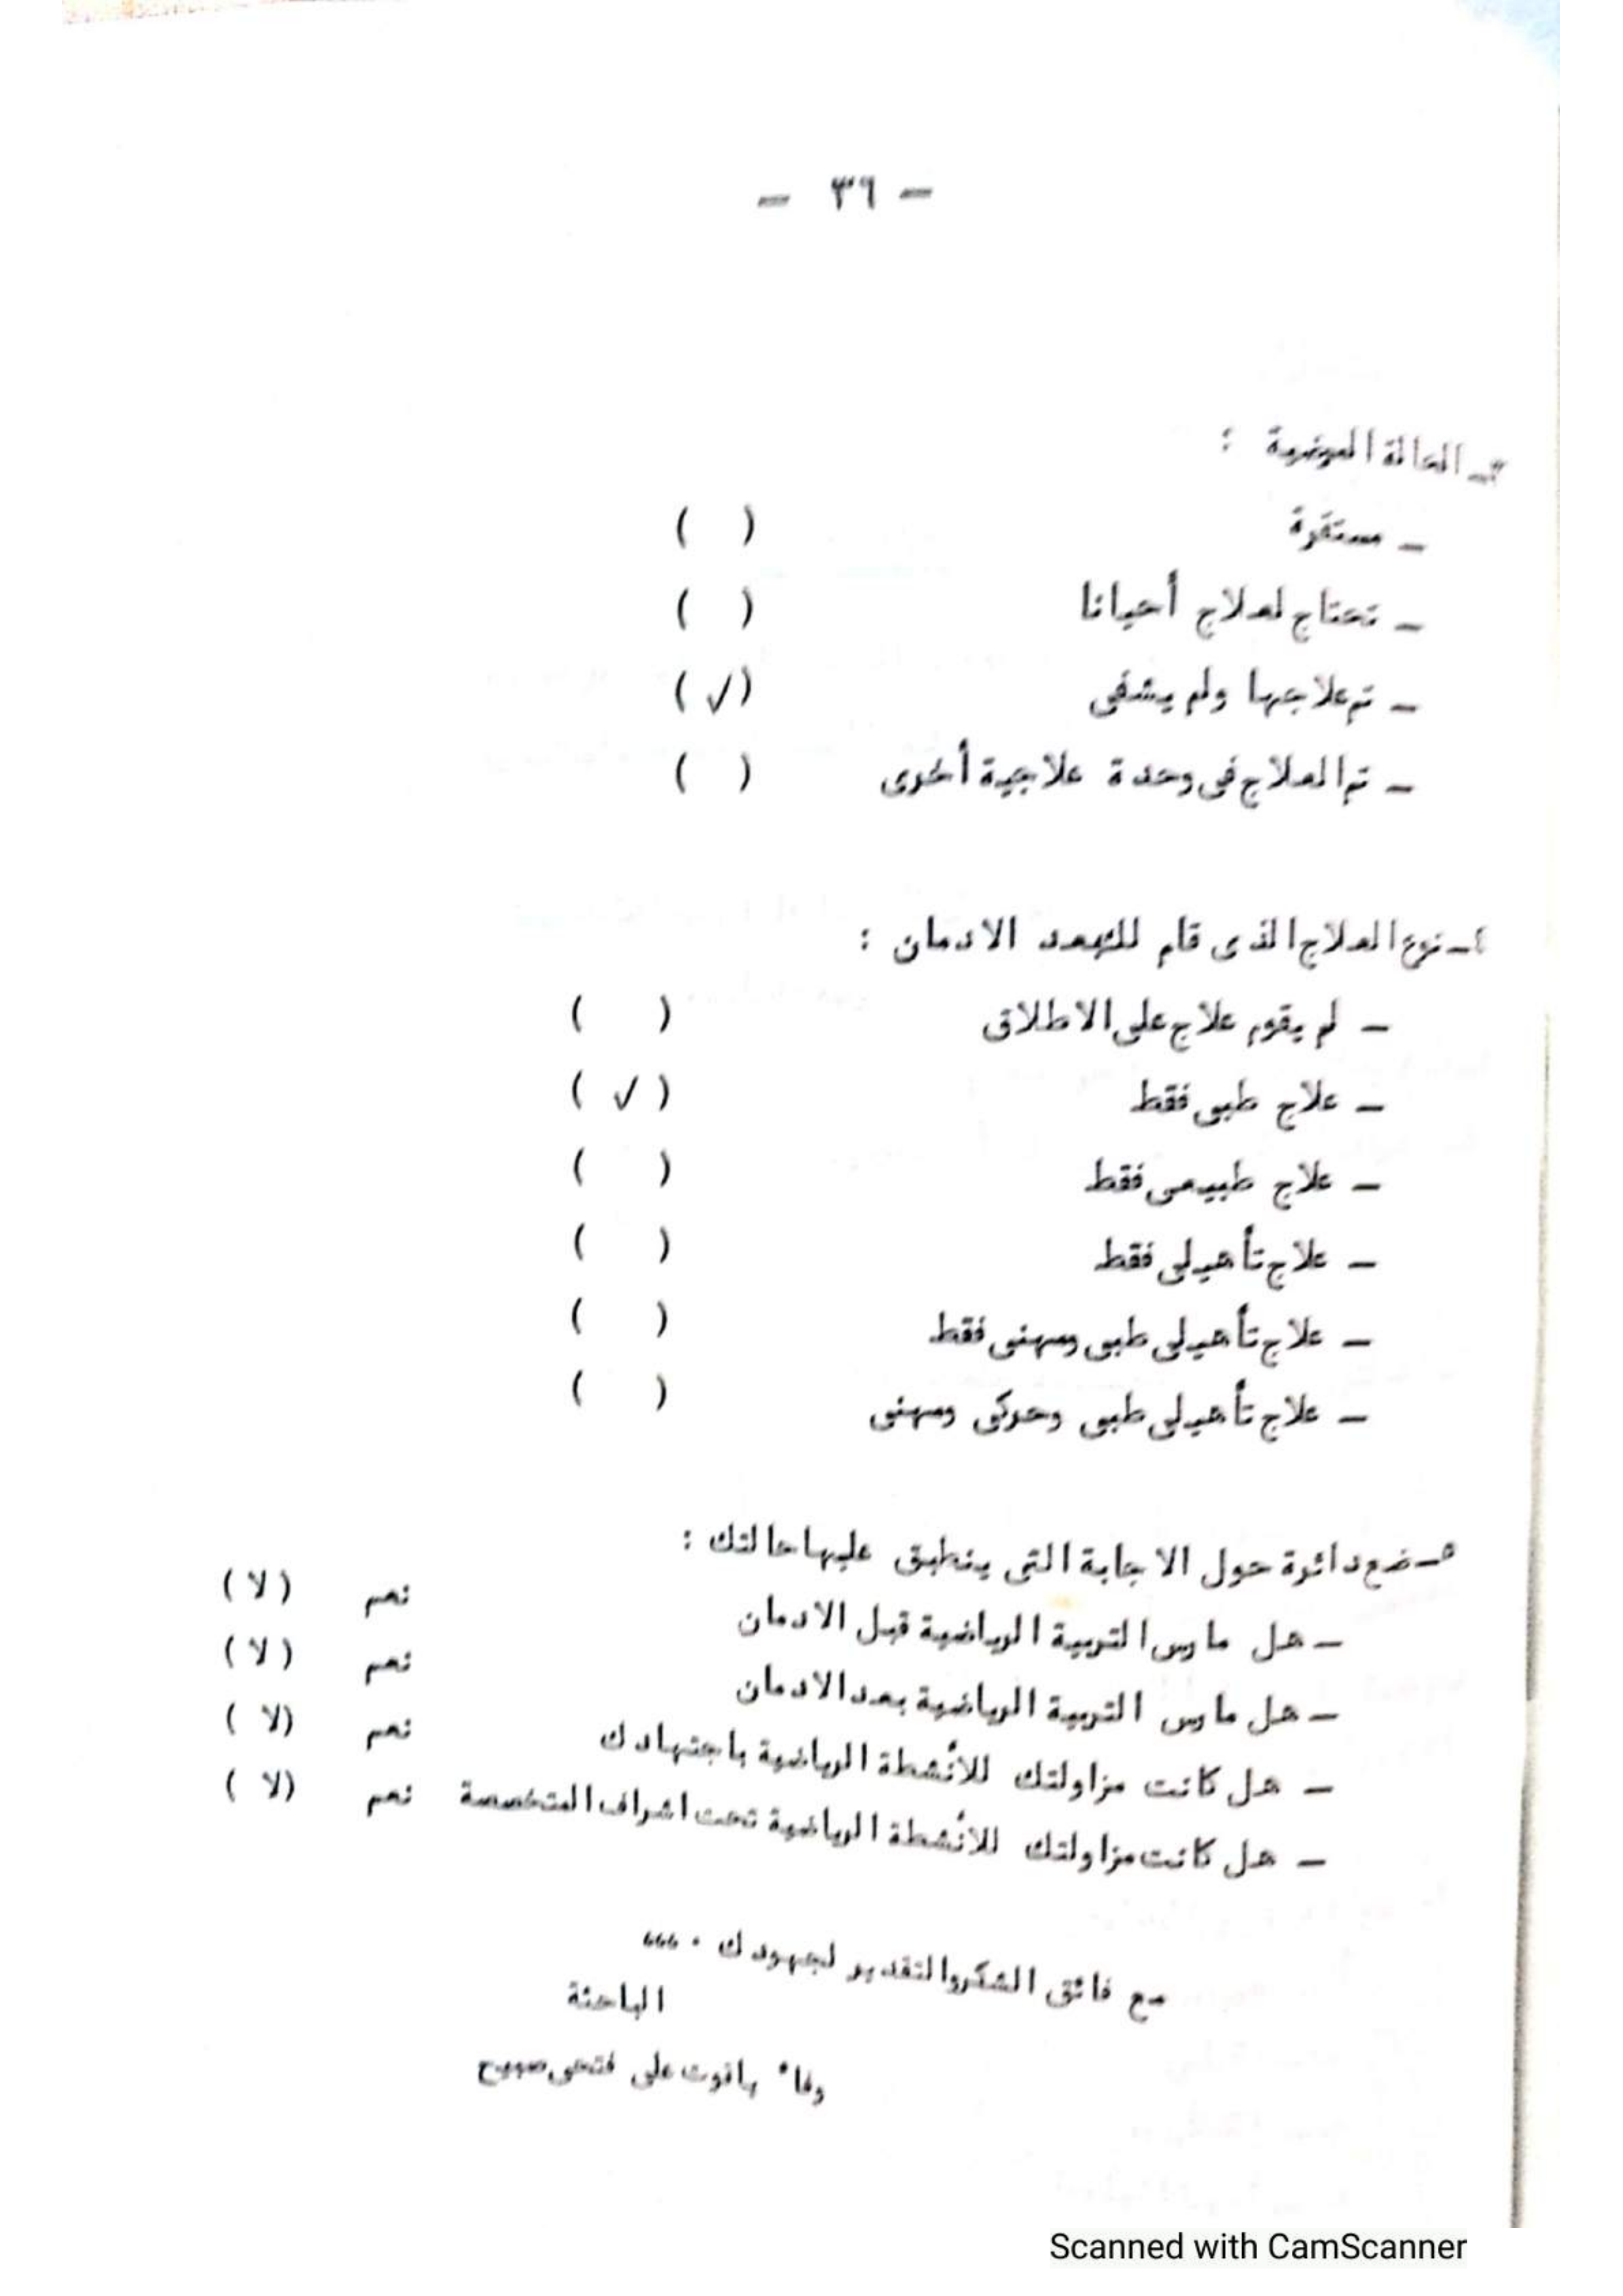 - ٣٦ -
٣- الحالة المرضية :
- مستقرة ( )
- تحتاج لعلاج أحيانا ( )
- تم علاجها ولم يشفى (√)
- تم العلاج فى وحدة علاجية أخرى ( )
٤- نوع العلاج الذى قام للبعد الادمان :
- لم يقوم علاج على الاطلاق ( )
- علاج طبى فقط (√)
- علاج طبيعى فقط ( )
- علاج تأهيلى فقط ( )
- علاج تأهيلى طبى ومهنى فقط ( )
- علاج تأهيلى طبى وحركى ومهنى ( )
٥- ضع دائرة حول الاجابة التى ينطبق عليها حالتك :
- هل مارس التربية الرياضية قبل الادمان نعم (لا)
- هل مارس التربية الرياضية بعد الادمان نعم (لا)
- هل كانت مزاولتك للأنشطة الرياضية باجتهادك نعم (لا)
- هل كانت مزاولتك للأنشطة الرياضية تحت اشراف المتخصصة نعم (لا)
مع فائق الشكر والتقدير لجهودك ٠ ،،،
الباحثة
وفاء ياقوت على فتحى صبيح
Scanned with CamScanner